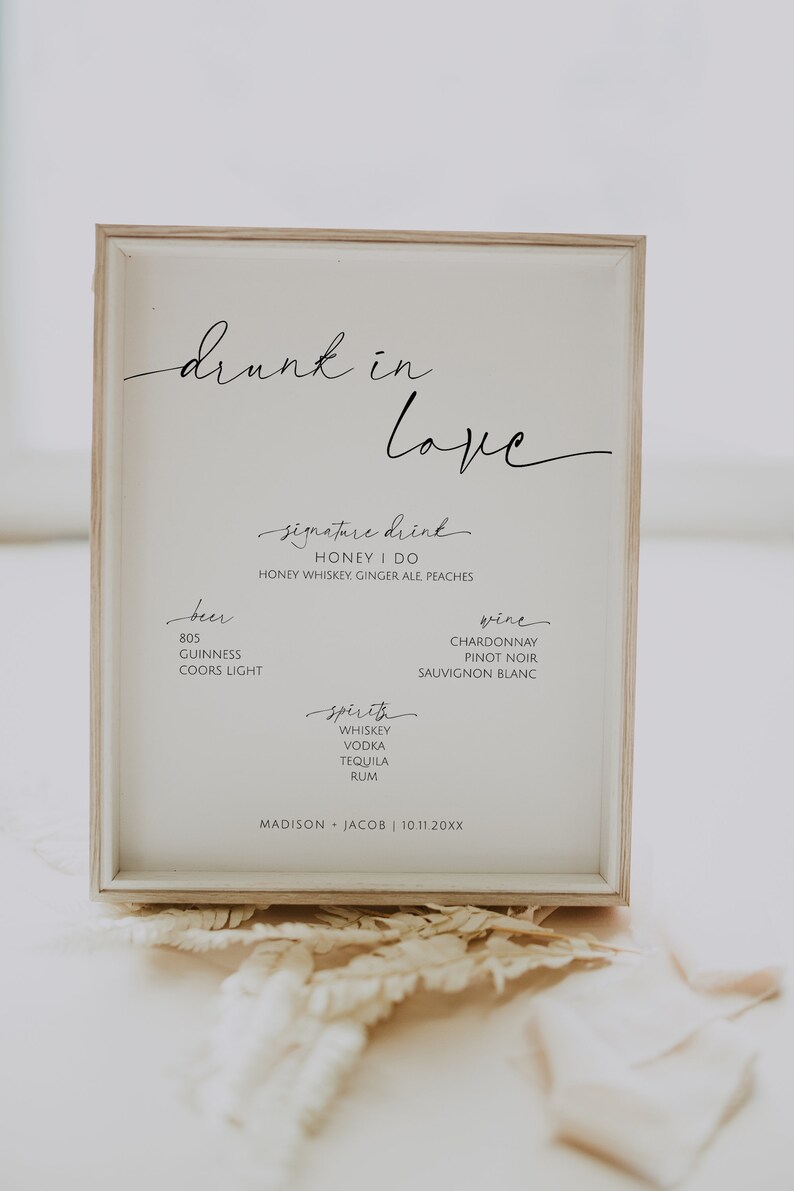 drunk in
love
signature drink
HONEY I DO
HONEY WHISKEY, GINGER ALE, PEACHES
beer
805
GUINNESS
COORS LIGHT
wine
CHARDONNAY
PINOT NOIR
SAUVIGNON BLANC
spirits
WHISKEY
VODKA
TEQUILA
RUM
MADISON + JACOB | 10.11.20XX